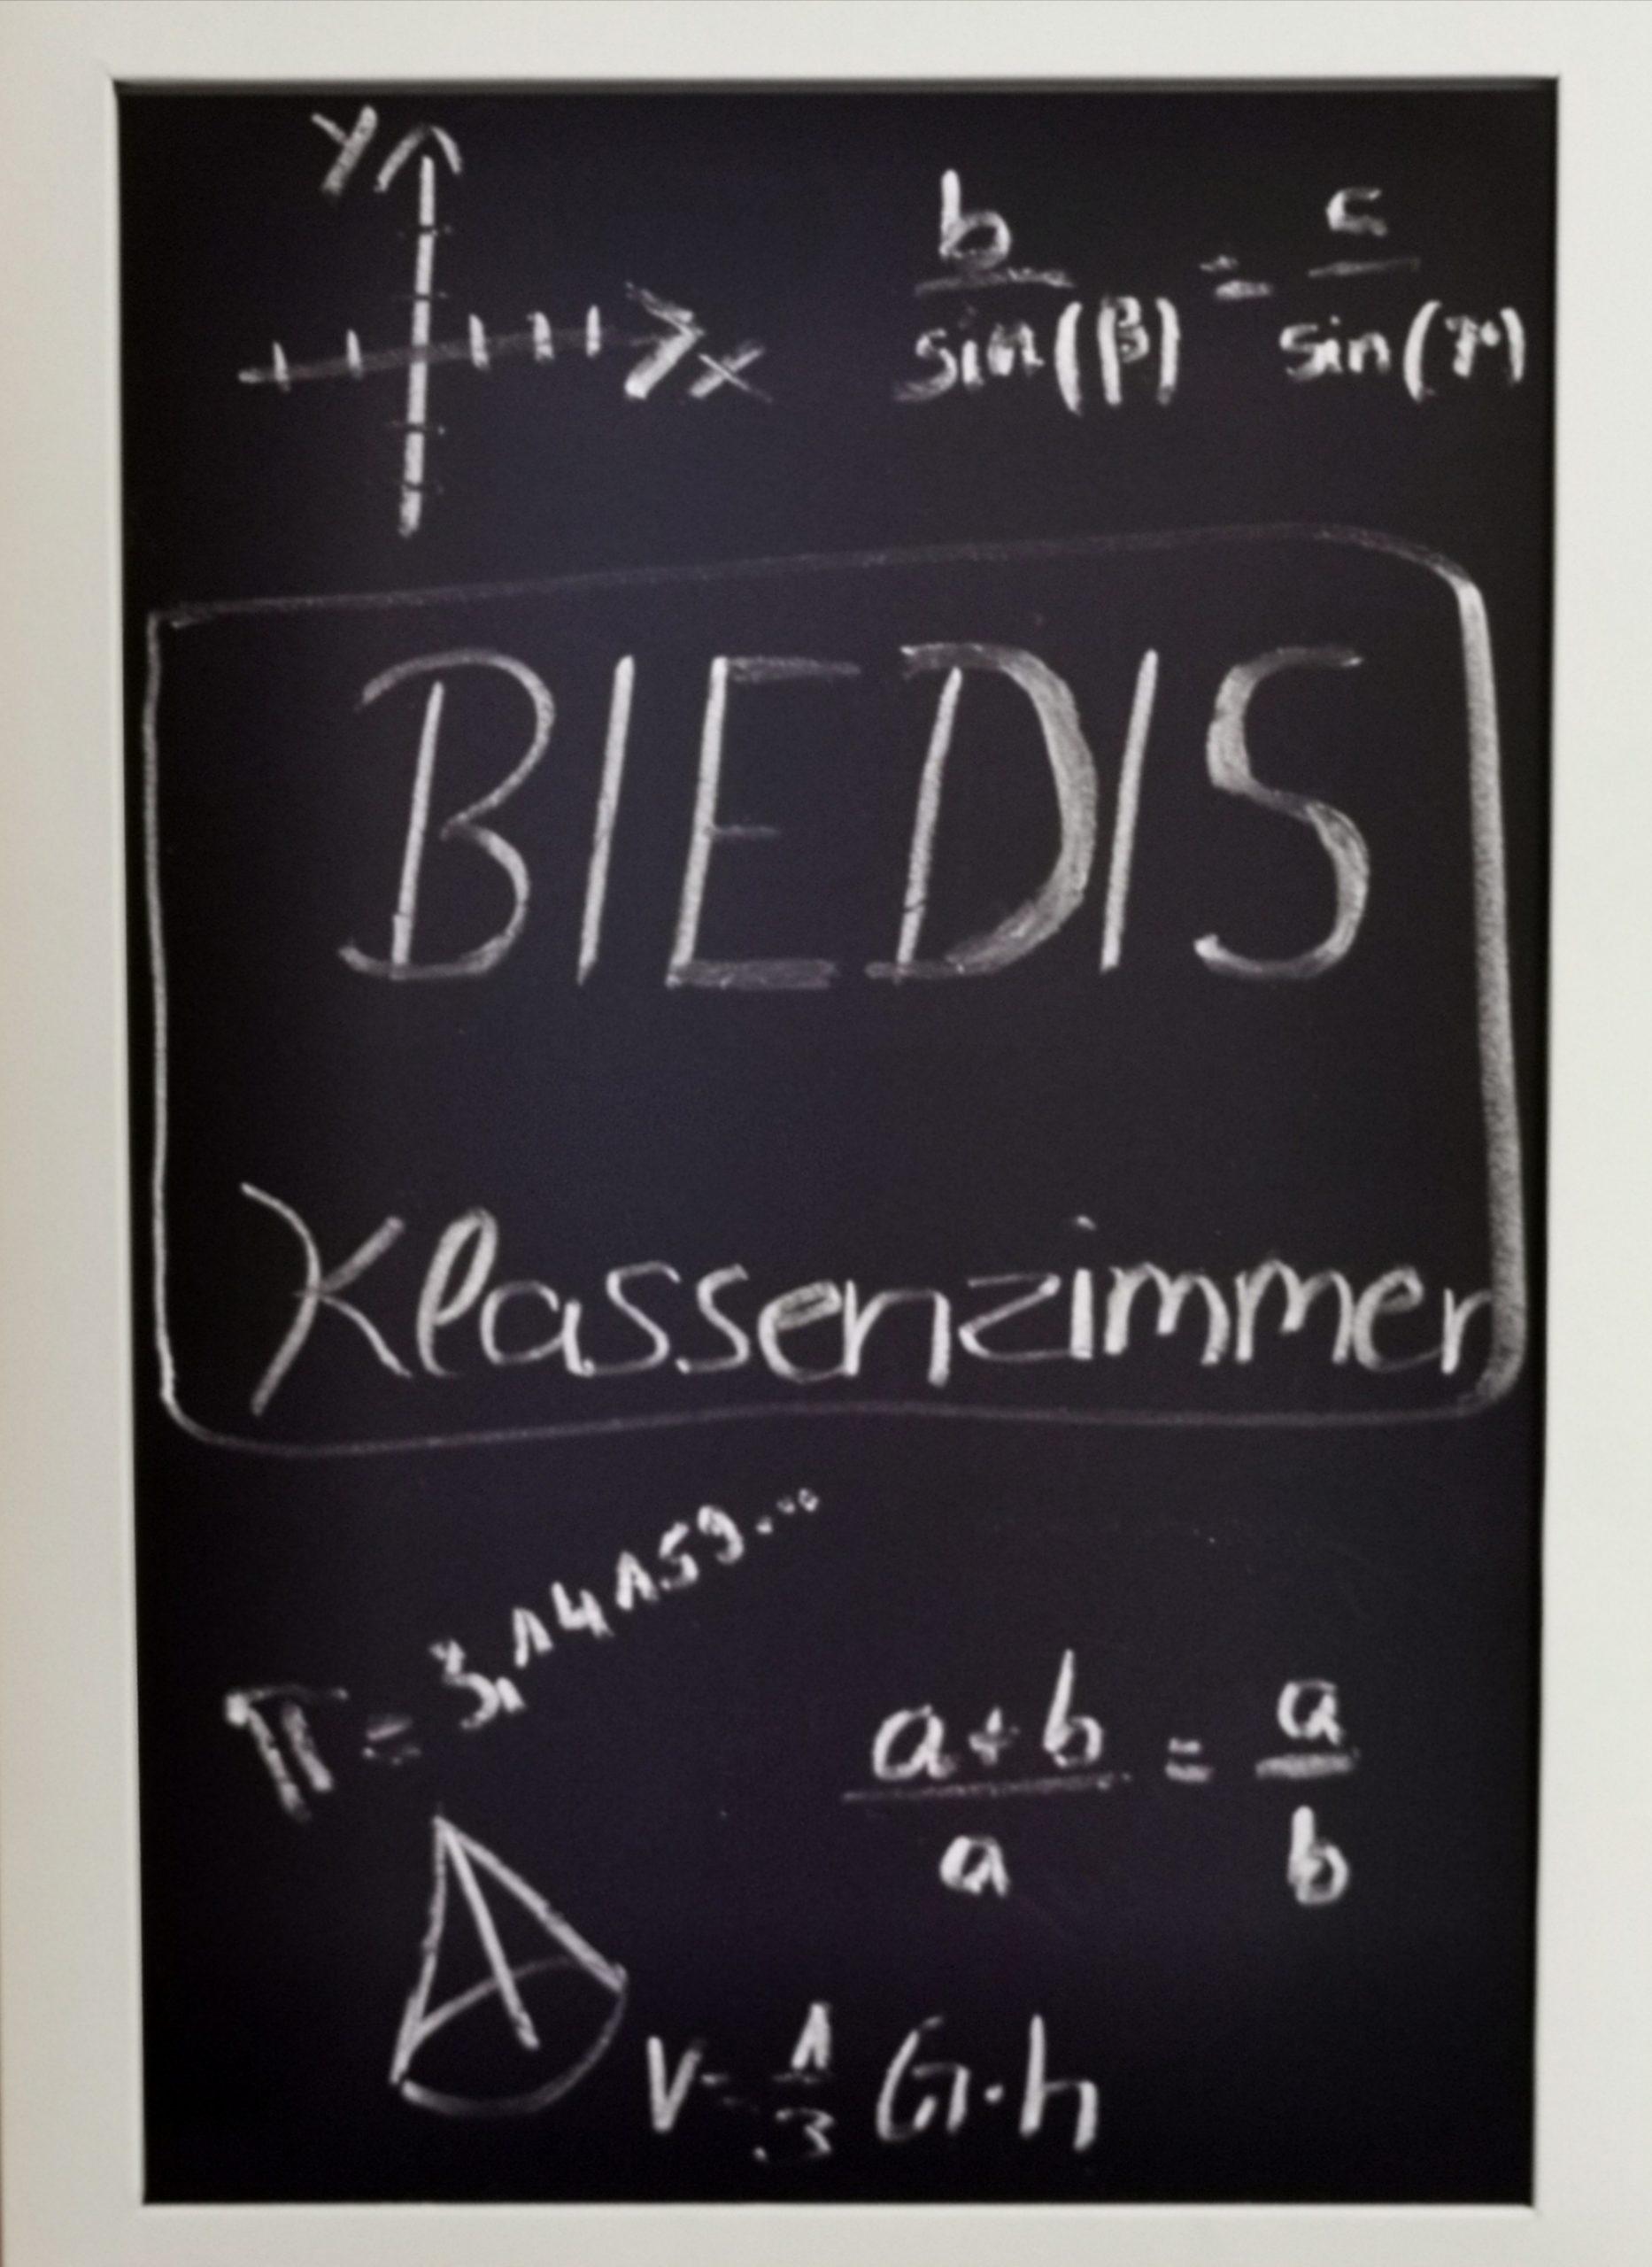 y
x
b/sin(β) = c/sin(γ)
BIEDIS
Klassenzimmer
π = 3,14159...
a+b/a = a/b
V = 1/3 G·h